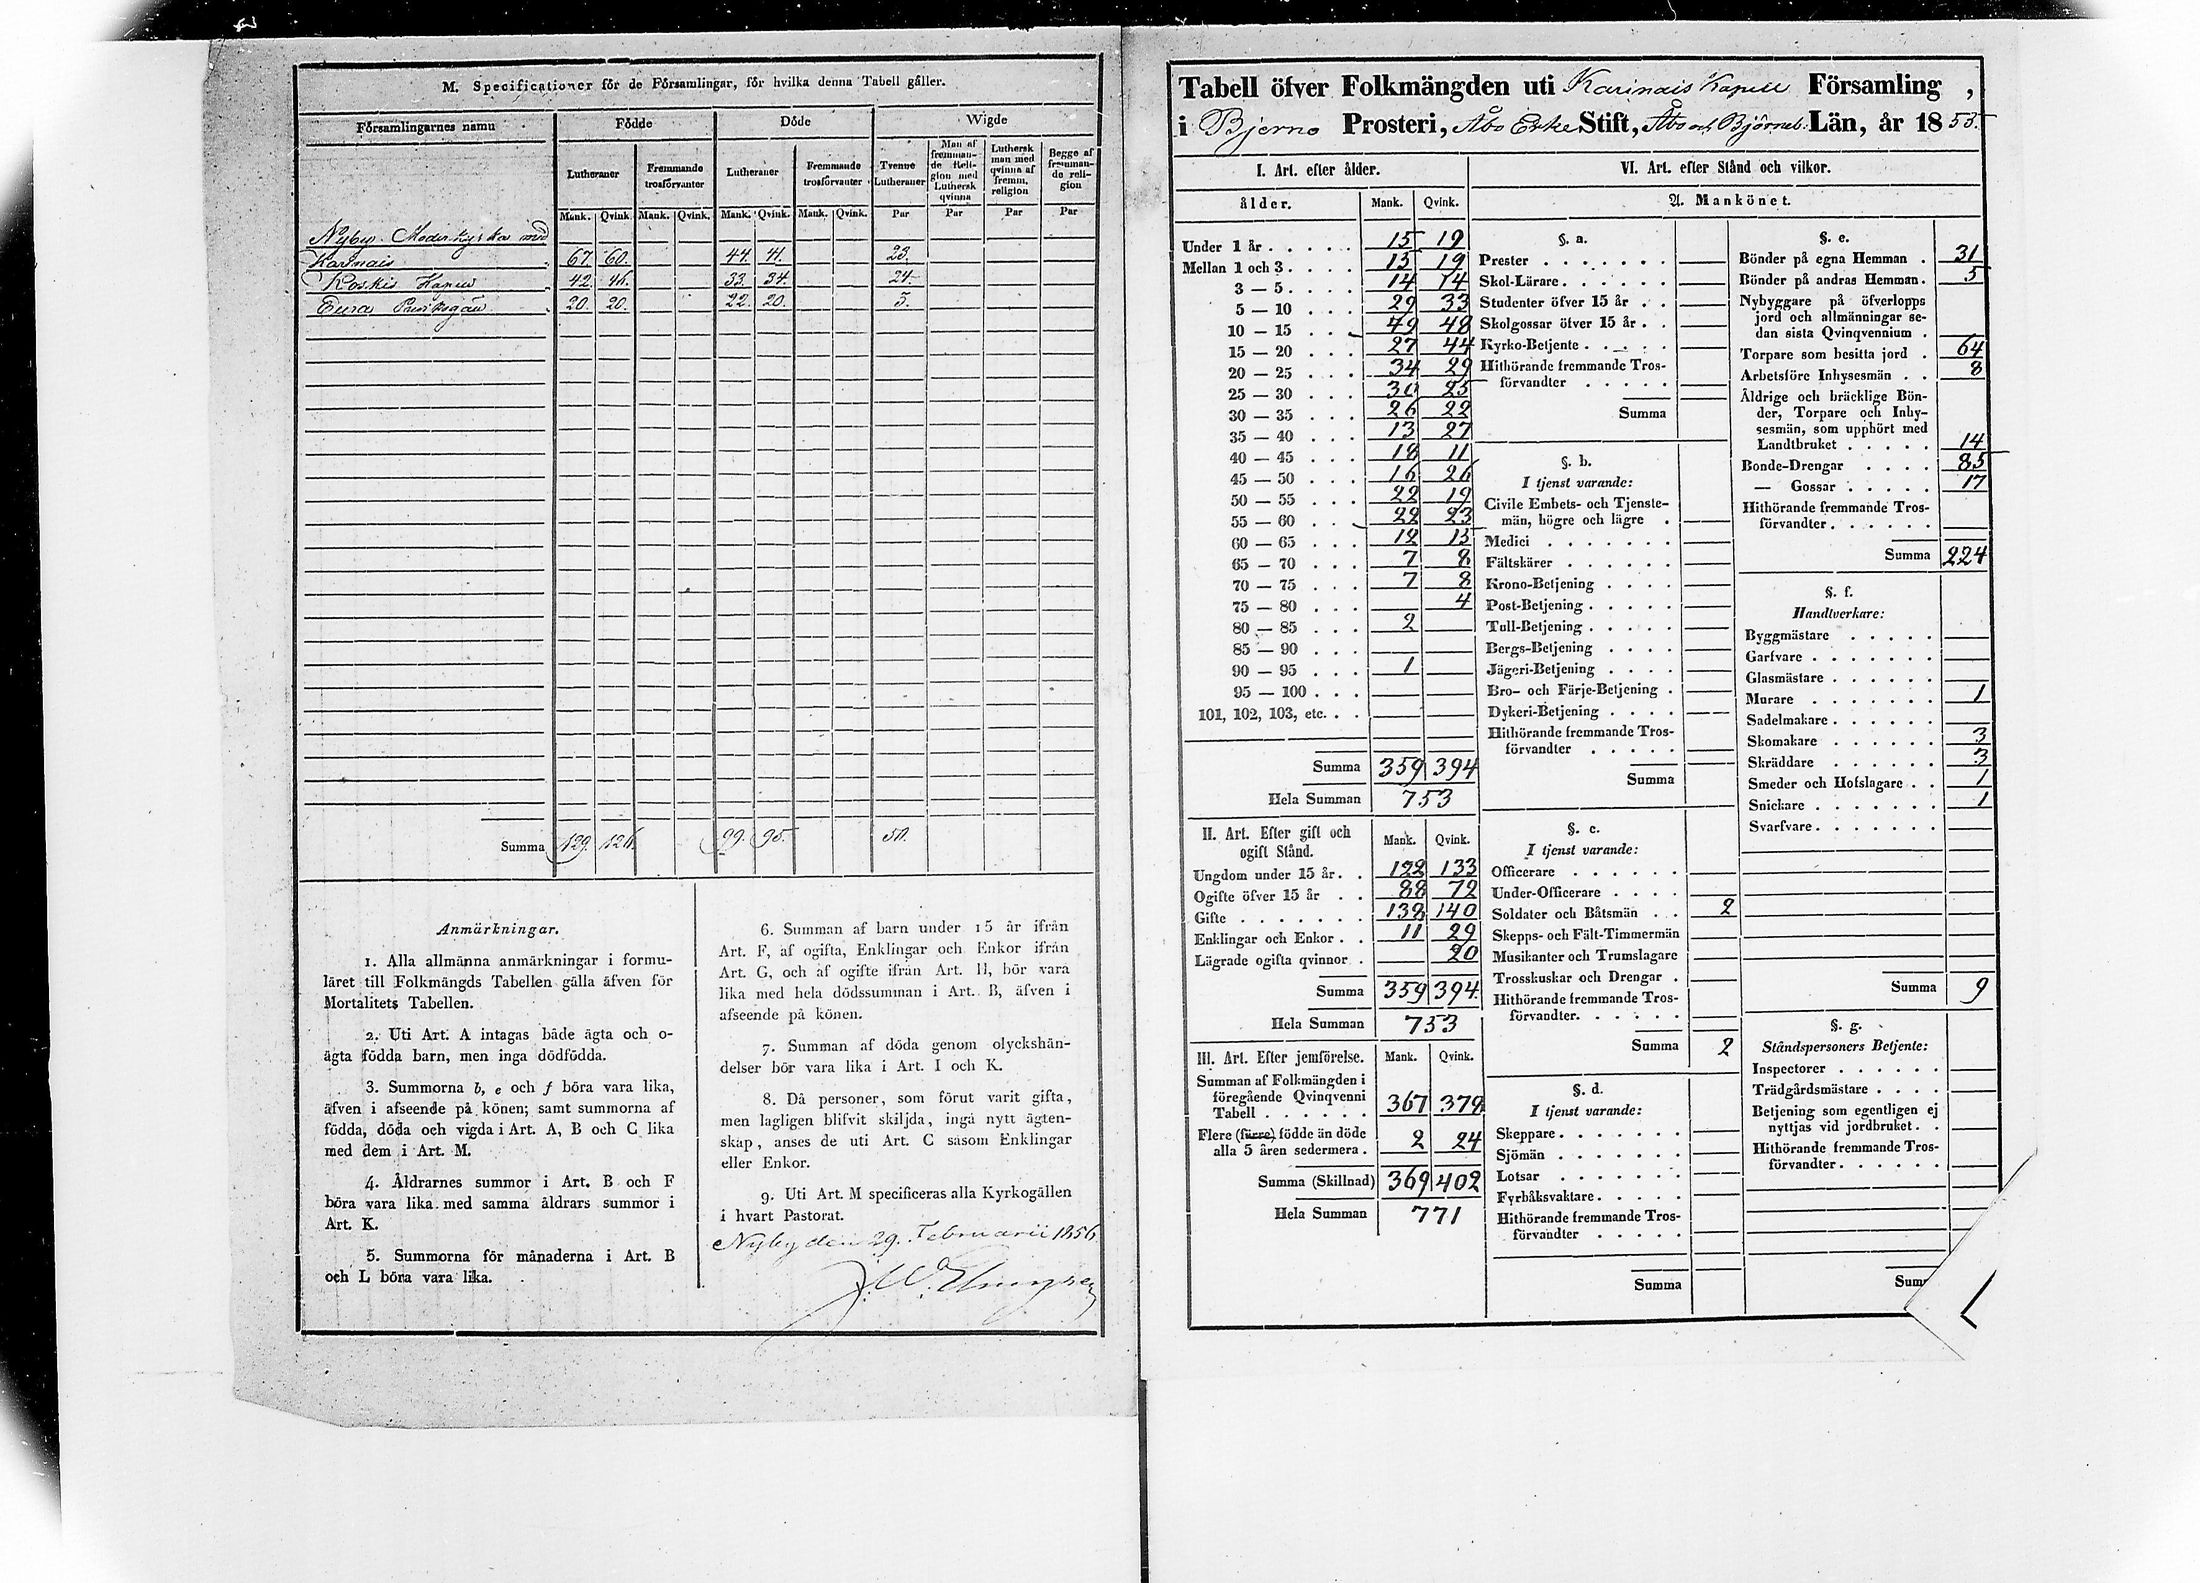 M. Specificationer för de Församlingar, för hvilka denna Tabell gäller.
Församlingarnes namn Födde Döde Wigde
Lutheraner Fremmande trosförvanter Lutheraner Fremmande trosförvanter Tvenne Lutheraner Man af fremmande Religion med Luthersk qvinna Luthersk man med qvinna af fremm. religion Begge af fremmande religion
Mank. Qvink. Mank. Qvink. Mank. Qvink. Mank. Qvink. Par Par Par Par
Nyby Moderkyrka med
Karinais 67. 60. 44. 41. 23.
Koskis Kapell 42. 46. 33. 34. 24.
Eura 20. 20. 22. 20. 3.
Summa 129. 126. 99. 95. 50.
Anmärkningar.
1. Alla allmänna anmärkningar i formu-
läret till Folkmängds Tabellen gälla äfven för
Mortalitets Tabellen.
2. Uti Art. A intagas både ägta och o-
ägta födda barn, men inga dödfödda.
3. Summorna b, e och f böra vara lika,
äfven i afseende på könen; samt summorna af
födda, döda och vigda i Art. A, B och C lika
med dem i Art. M.
4. Åldrarnes summor i Art. B och F
böra vara lika med samma åldrars summor i
Art. K.
5. Summorna för månaderna i Art. B
och L böra vara lika.
6. Summan af barn under 15 år ifrån
Art. F, af ogifta, Enklingar och Enkor ifrån
Art. G, och af ogifte ifrån Art. H, bör vara
lika med hela dödssumman i Art. B, äfven i
afseende på könen.
7. Summan af döda genom olyckshän-
delser bör vara lika i Art. I och K.
8. Då personer, som förut varit gifta,
men lagligen blifvit skiljda, ingå nytt ägten-
skap, anses de uti Art. C såsom Enklingar
eller Enkor.
9. Uti Art. M specificeras alla Kyrkogällen
i hvart Pastorat.
Nyby den 29. Februarii 1856
Tabell öfver Folkmängden uti Karinais Kapell Församling,
i Bjerno Prosteri, Åbo Erke Stift, Åbo och Björneb: Län, år 1855.
I. Art. efter ålder.
ålder. Mank. Qvink.
Under 1 år 15 19
Mellan 1 och 3 15 19
3 — 5 14 14
5 — 10 29 33
10 — 15 49 48
15 — 20 27 44
20 — 25 34 29
25 — 30 30 25
30 — 35 26 22
35 — 40 13 27
40 — 45 18 11
45 — 50 16 26
50 — 55 22 19
55 — 60 22 23
60 — 65 12 15
65 — 70 7 8
70 — 75 7 8
75 — 80 4
80 — 85 2
85 — 90
90 — 95 1
95 — 100
101, 102, 103, etc.
Summa 359 394
Hela Summan 753
II. Art. Efter gift och ogift Stånd. Mank. Qvink.
Ungdom under 15 år 122 133
Ogifte öfver 15 år 88 72
Gifte 138 140
Enklingar och Enkor 11 29
Lägrade ogifta qvinnor 20
Summa 359 394.
Hela Summan 753
III. Art. Efter jemförelse. Mank. Qvink.
Summan af Folkmängden i
föregående Qvinqvenni
Tabell 367 379
Flere (färre) födde än döde
alla 5 åren sedermera 2 24
Summa (Skillnad) 369 402
Hela Summan 771
VI. Art. efter Stånd och vilkor.
A. Mankönet.
§. a.
Prester
Skol-Lärare
Studenter öfver 15 år
Skolgossar öfver 15 år
Kyrko-Betjente
Hithörande fremmande Tros-
förvandter
Summa
§. b.
I tjenst varande:
Civile Embets- och Tjenste-
män, högre och lägre
Medici
Fältskärer
Krono-Betjening
Post-Betjening
Tull-Betjening
Bergs-Betjening
Jägeri-Betjening
Bro- och Färje-Betjening
Dykeri-Betjening
Hithörande fremmande Tros-
förvandter
Summa
§. c.
I tjenst varande:
Officerare
Under-Officerare
Soldater och Båtsmän 2
Skepps- och Fält-Timmermän
Musikanter och Trumslagare
Trosskuskar och Drengar
Hithörande fremmande Tros-
förvandter.
Summa 2
§. d.
I tjenst varande:
Skeppare
Sjömän
Lotsar
Fyrbåksvaktare
Hithörande fremmande Tros-
förvandter
Summa
§. e.
Bönder på egna Hemman 31
Bönder på andras Hemman 5
Nybyggare på öfverlopps
jord och allmänningar se-
dan sista Qvinqvennium
Torpare som besitta jord 64
Arbetsföre Inhysesmän 8
Åldrige och bräcklige Bön-
der, Torpare och Inhy-
sesmän, som upphört med
Landtbruket 14
Bonde-Drengar 85
— Gossar 17
Hithörande fremmande Tros-
förvandter
Summa 224
§. f.
Handtverkare:
Byggmästare
Garfvare
Glasmästare
Murare 1
Sadelmakare
Skomakare 3
Skräddare 3
Smeder och Hofslagare 1
Snickare 1
Svarfvare
Summa 9
§. g.
Ståndspersoners Betjente:
Inspectorer
Trädgårdsmästare
Betjening som egentligen ej
nyttjas vid jordbruket
Hithörande fremmande Tros-
förvandter
Summ